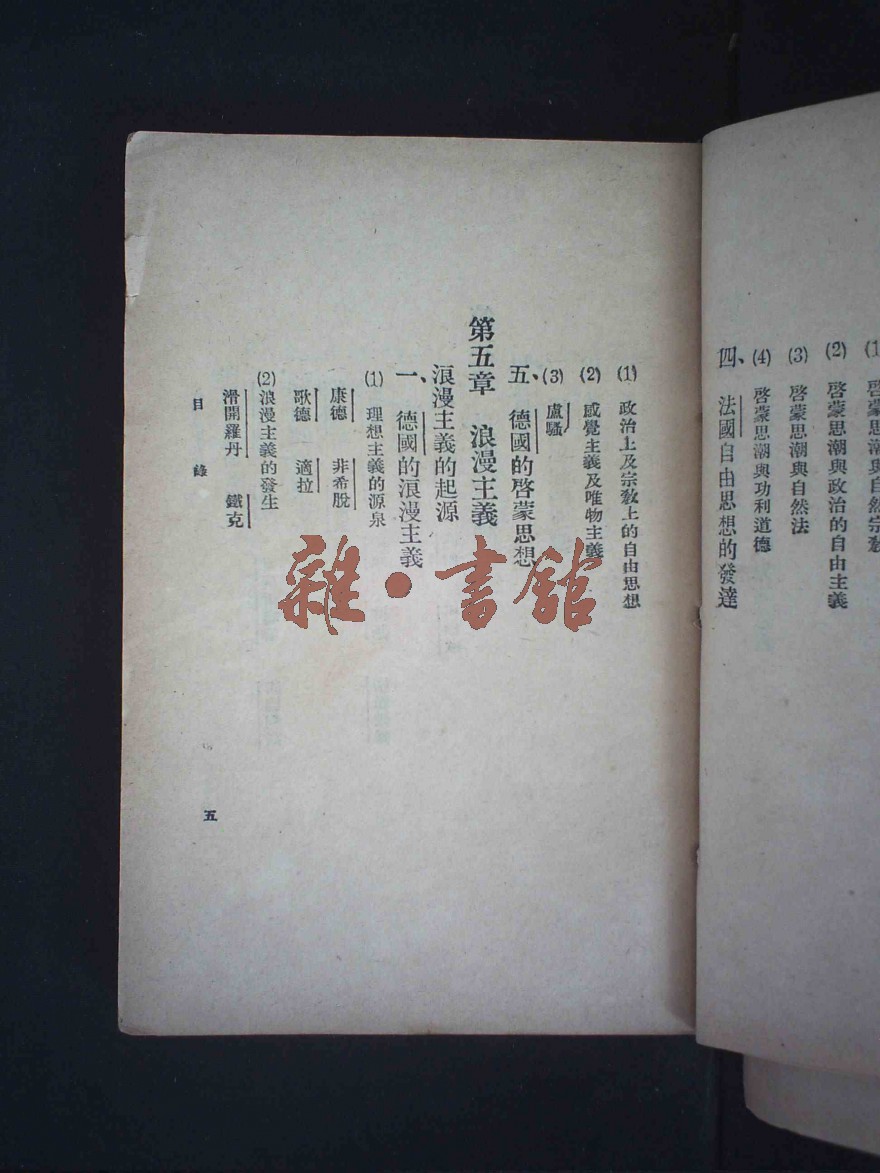 (1) 啓蒙思潮與自然宗教
(2) 啓蒙思潮與政治的自由主義
(3) 啓蒙思潮與自然法
(4) 啓蒙思潮與功利道德
四、法國自由思想的發達
(1) 政治上及宗教上的自由思想
(2) 感覺主義及唯物主義
(3) 盧騷
五、德國的啓蒙思想
第五章 浪漫主義
浪漫主義的起源
一、德國的浪漫主義
(1) 理想主義的源泉
康德 非希脫
歌德 適拉
(2) 浪漫主義的發生
滑開羅丹 鐵克
目錄
五
雜·書館